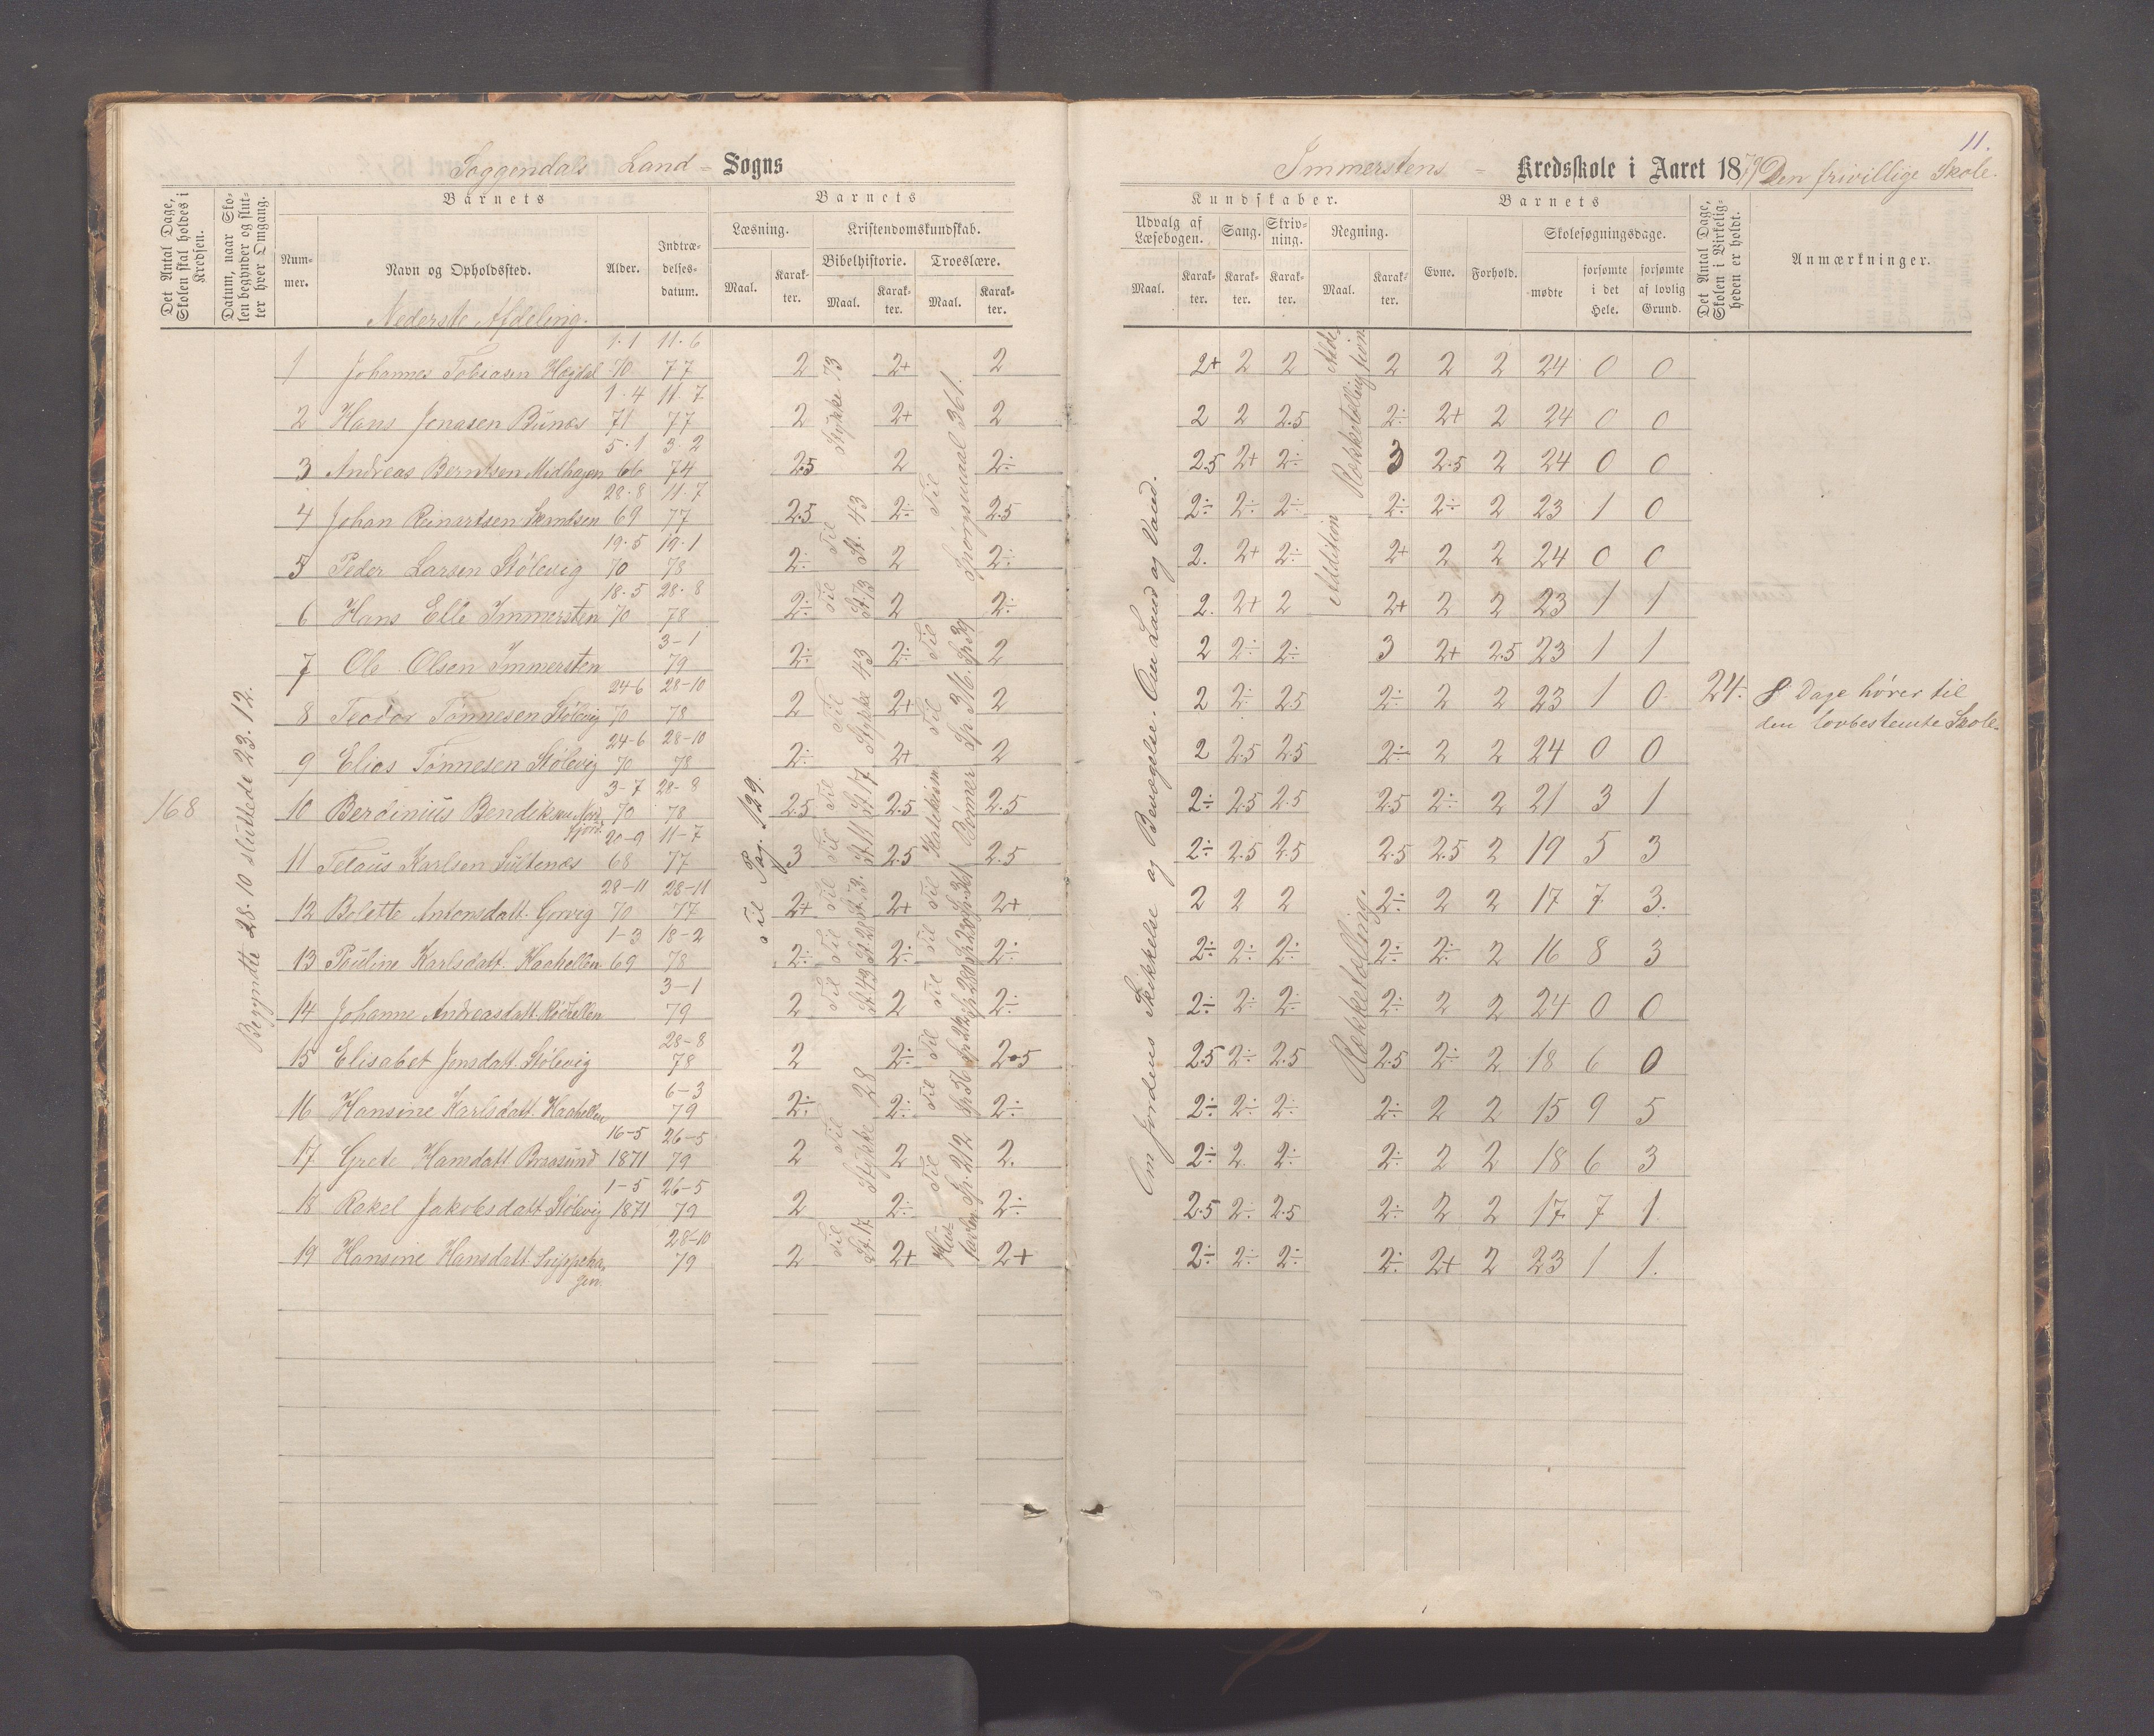 11.
Soggendals Land - Sogns
Immerstens - Kredsskole i Aaret 1879 Den frivillige Skole.
Det Antal Dage, Skolen skal holdes i Kredsen.
Datum, naar Skolen begynder og slutter hver Omgang.
Barnets
Nummer.
Navn og Opholdssted.
Alder.
Indtrædelses-datum.
Barnets
Læsning.
Maal.
Karakter.
Kristendomskundskab.
Bibelhistorie.
Maal.
Karakter.
Troeslære.
Maal.
Karakter.
Kundskaber.
Udvalg af Læsebogen.
Maal.
Karakter.
Sang.
Karakter.
Skrivning.
Karakter.
Regning.
Maal.
Karakter.
Barnets
Evne.
Forhold.
Skolesøgningsdage.
mødte
forsømte i det Hele.
forsømte af lovlig Grund.
Det Antal Dage, Skolen i Virkeligheden er holdt.
Anmærkninger.
Nederste Afdeling.
168
Begyndte 28.10 sluttede 23.12.
Til Pag. 129.
Om Jordens Skikkelse og Bevægelse. Om Land og Vand.
1 Johannes Tobiasen 1.1 70 11.6 77 2 2+ 2 2+ 2 2 2 2 2 24 0 0
2 Hans Jonasen Bunæs 1.4 71 11.7 77 2 2+ 2 2 2 2.5 2÷ 2+ 2 24 0 0
3 Andreas Berntsen Midhagen 5.1 66 3.2 74 2.5 2 2÷ 2.5 2+ 2÷ 3 2.5 2 24 0 0
4 Johan Reinertsen 28.8 69 11.7 77 2.5 2÷ 2.5 2÷ 2÷ 2÷ 2÷ 2÷ 2 23 1 0
5 Peder Larsen Stølevig 19.5 70 19.1 78 2÷ 2 2÷ 2. 2+ 2÷ 2+ 2 2 24 0 0
6 Hans Elle Immersten 18.5 70 28.8 78 2÷ 2 2÷ 2. 2+ 2 2+ 2 2 23 1 1
7 Ole Olsen Immersten 3-1 79 2÷ 2÷ 2 2 2÷ 2÷ 3 2+ 2.5 23 1 1
8 Teodor Tønnesen Stølevig 24-6 70 28-10 78 2 2+ 2 2 2÷ 2.5 2÷ 2 2 23 1 0 24. 8 Dage hører til
den lovbestemte Skole.
9 Elias Tønnesen Stølevig 24-6 70 28-10 78 2÷ 2+ 2 2 2.5 2.5 2÷ 2 2 24 0 0
10 Berdinius Bendiksen Nordfjord 3-7 70 28-8 78 2.5 2.5 2.5 2÷ 2.5 2.5 2.5 2÷ 2 21 3 1
11 Karlsen 20-9 68 11-7 77 3 2.5 2.5 2÷ 2.5 2.5 2.5 2.5 2 19 5 3
12 Bolette Antonsdatt. 28-11 70 28-11 77 2+ 2+ 2+ 2 2 2 2÷ 2 2 17 7 3.
13 Pauline Karlsdatt. Kaahellen 1-3 69 18-2 78 2÷ 2÷ 2÷ 2÷ 2÷ 2÷ 2÷ 2÷ 2 16 8 3
14 Johanne Andreasdatt. 3-1 79 2 2 2÷ 2÷ 2÷ 2÷ 2÷ 2 2 24 0 0
15 Elisabet Jensdatt. Stølevig 28-8 78 2 2÷ 2.5 2.5 2÷ 2.5 2.5 2÷ 2 18 6 0
16 Hansine Karlsdatt. Kaahellen 6-3 79 2÷ 2÷ 2÷ 2÷ 2÷ 2÷ 2÷ 2 2 15 9 5
17 Grete Hansdatt Braasund 16-5 1871 26-5 79 2 2 2. 2÷ 2 2÷ 2÷ 2 2 18 6 3
18 Rakel Jakobsdatt Stølevig 1-5 1871 26-5 79 2 2÷ 2÷ 2.5 2÷ 2.5 2÷ 2 2 17 7 1.
19 Hansine Hansdatt 28-10 79 2 2+ 2+ 2÷ 2÷ 2÷ 2÷ 2+ 2 23 1 1.
Stykke 73
Til St. 43
Til St. 73
Til Stykke 43
Til St. 17
Til St. 11
Til St. 73.
Til St. 28
Til St. 43
Til Stykke 28
Til St. 17
Til Spørgsmaal 361.
Til Sp. 39
Til Sp. 316.
Til Sp. 361
Til Sp. 212
Rækketælling
Addition
Rækketælling.